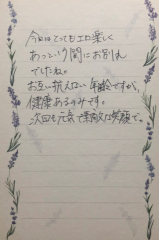 今日はとてもエロ楽しく
あっという間にお別れ
でしたね。
お互い抗えない年齢ですが、
健康あるのみです。
次回も元気で素敵な笑顔で。